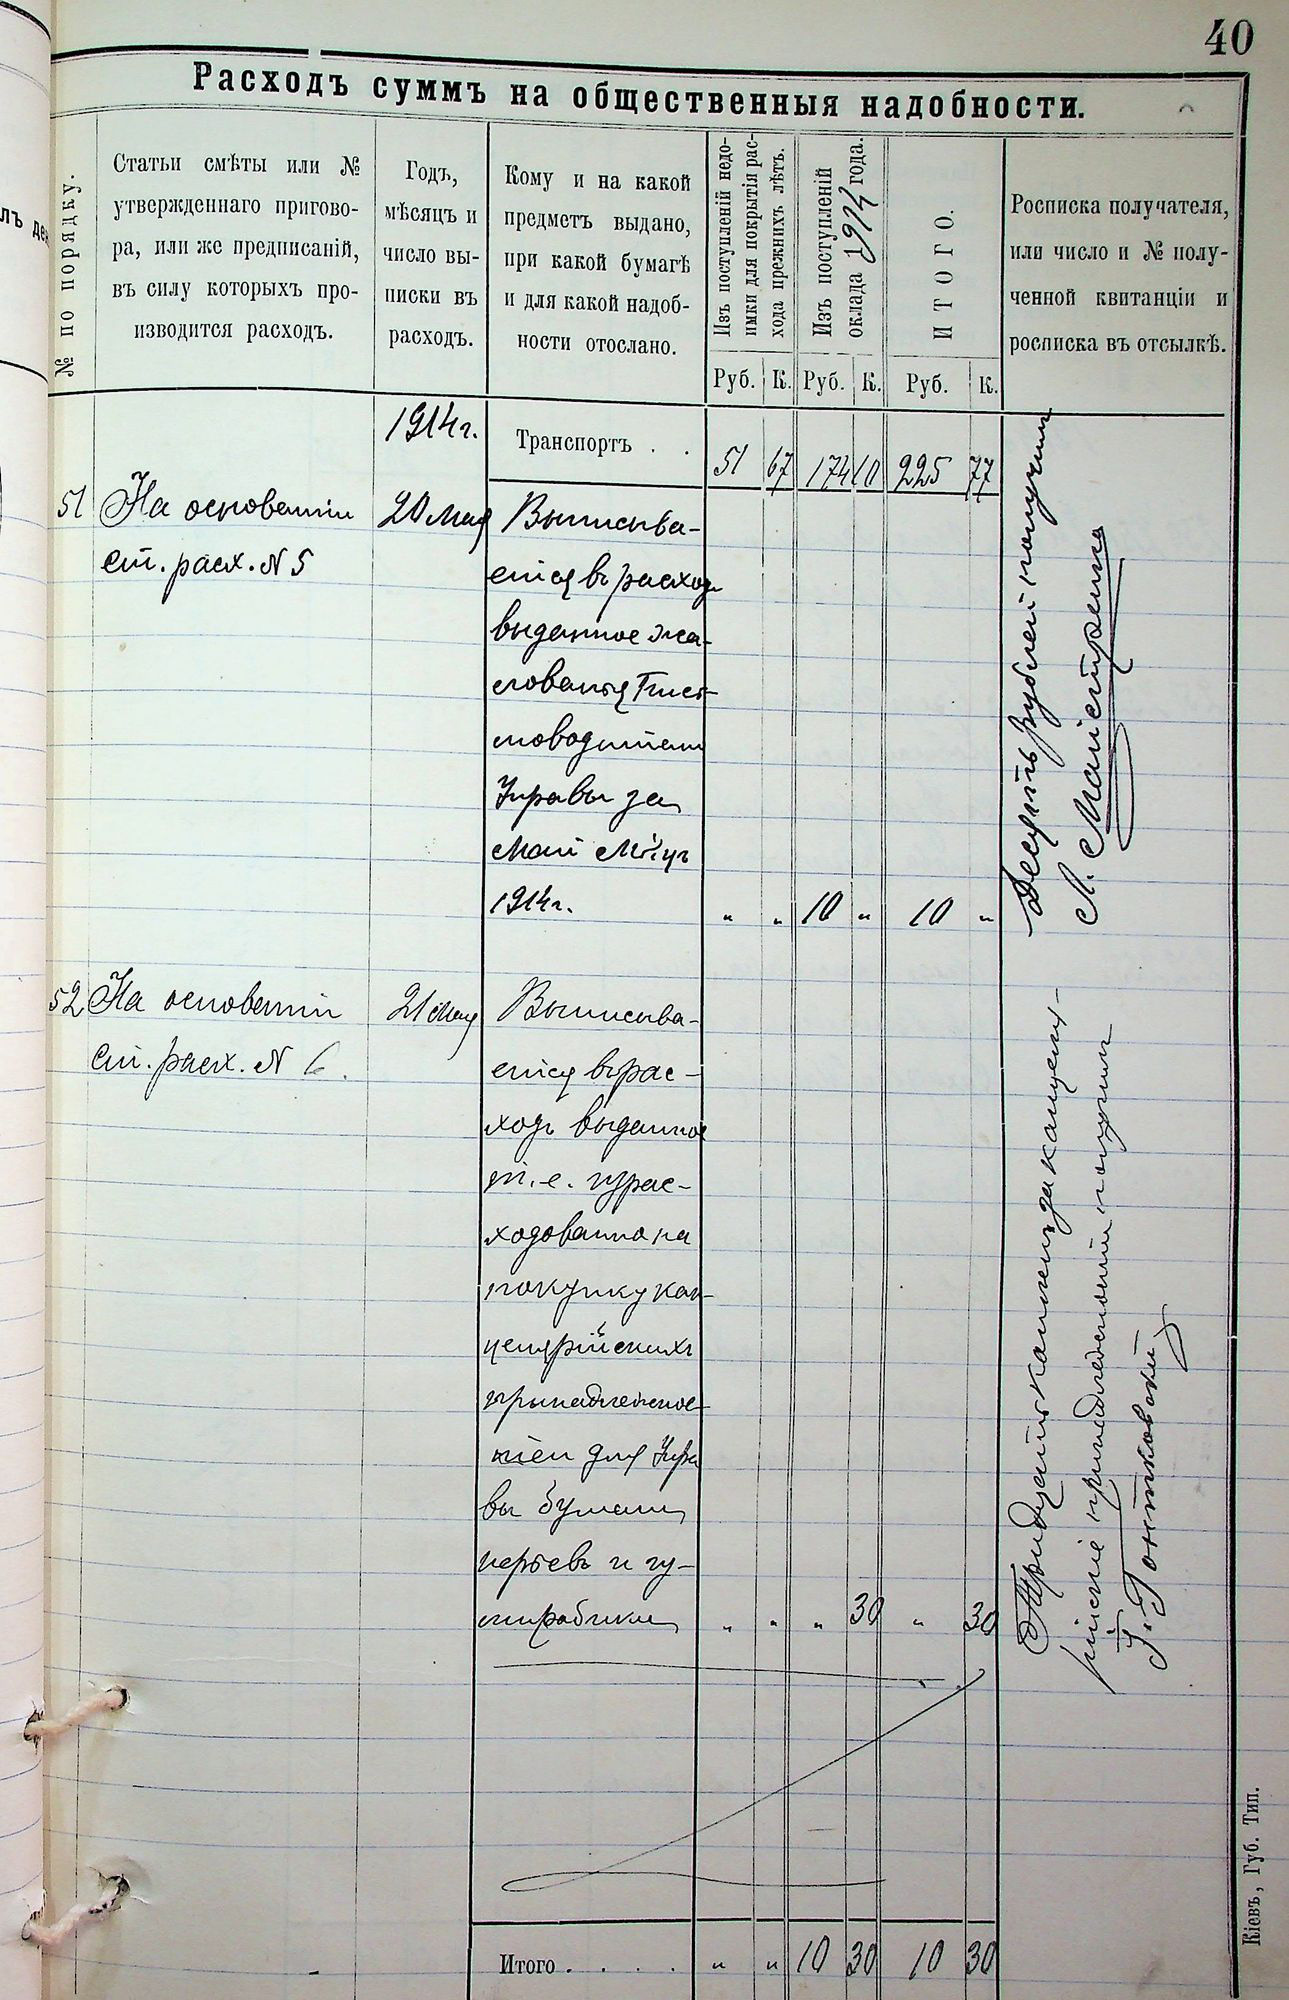 40
Расходъ суммъ на общественныя надобности.
№ по порядку.
Статьи смѣты или №
утвержденнаго пригово-
ра, или же предписаній,
въ силу которыхъ про-
изводится расходъ.
Годъ,
мѣсяцъ и
число вы-
писки въ
расходъ.
Кому и на какой
предметъ выдано,
при какой бумагѣ
и для какой надоб-
ности отослано.
Изъ поступленій недо-
имки для покрытія рас-
хода прежнихъ лѣтъ.
Изъ поступленій
оклада 1914 года.
ИТОГО.
Росписка получателя,
или число и № полу-
ченной квитанціи и
росписка въ отсылкѣ.
Руб. К. Руб. К. Руб. К.
1914 г. Транспортъ . . 51 67 174 10 225 77
51 На основаніи 20 мая Выписыва-
ст. расх. N 5 ется въ расходъ
выданное жа-
лованья Пись-
моводителю
Управы за
Май М-цъ
1914 г. " " 10 " 10 "
Десять рублей получил
Л. Майстренко
52 На основаніи 21 мая Выписыва-
ст. расх. N 6. ется в рас-
ходъ выданное
т.е. израс-
ходовано на
покупку кан-
целярійскихъ
принадлежнос-
тей для Упра
вы бумаги
перьевъ и гу-
мирабики " " " 30 " 30
Тридцать копеекъ за канцеля-
рійскіе принадлежности получил
Гонтковскій
Итого . . . . " " 10 30 10 30
Кіевъ, Губ. Тип.